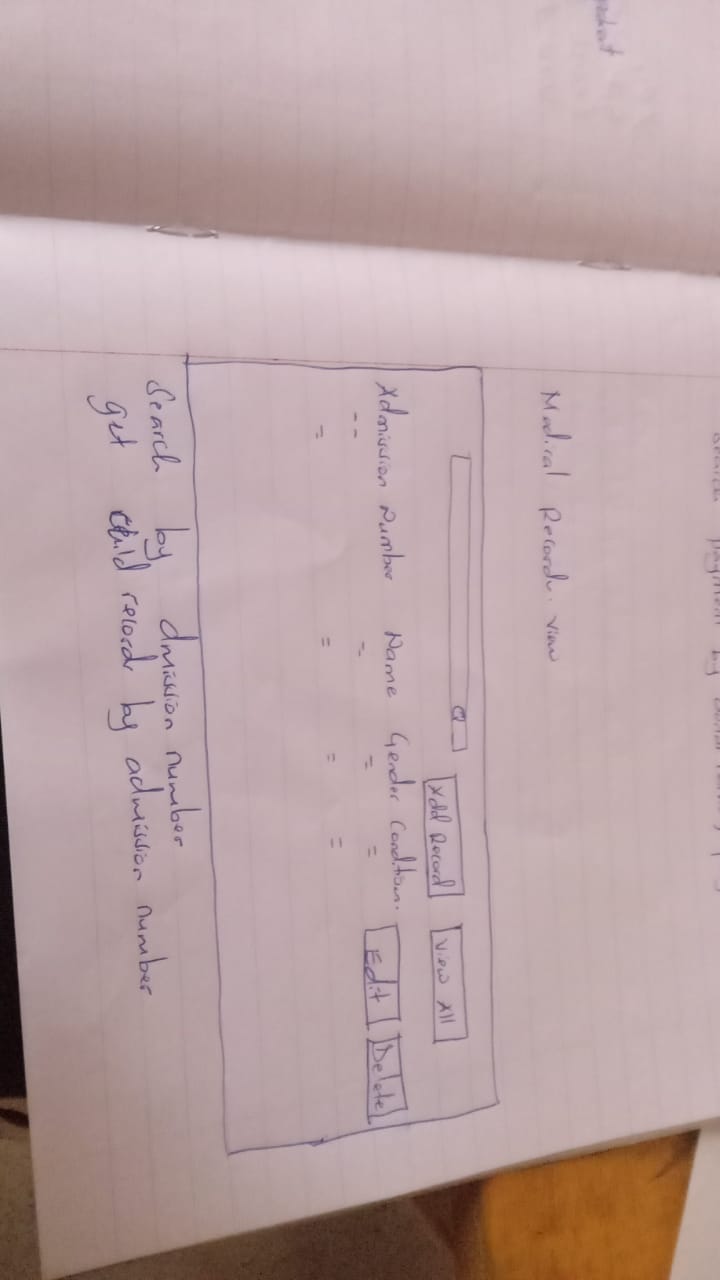 Medical Records view
Add Record View All
Admission Number Name Gender Condition.
-- = = = Edit Delete
= = = =
Search by dmission number
get child records by admission number